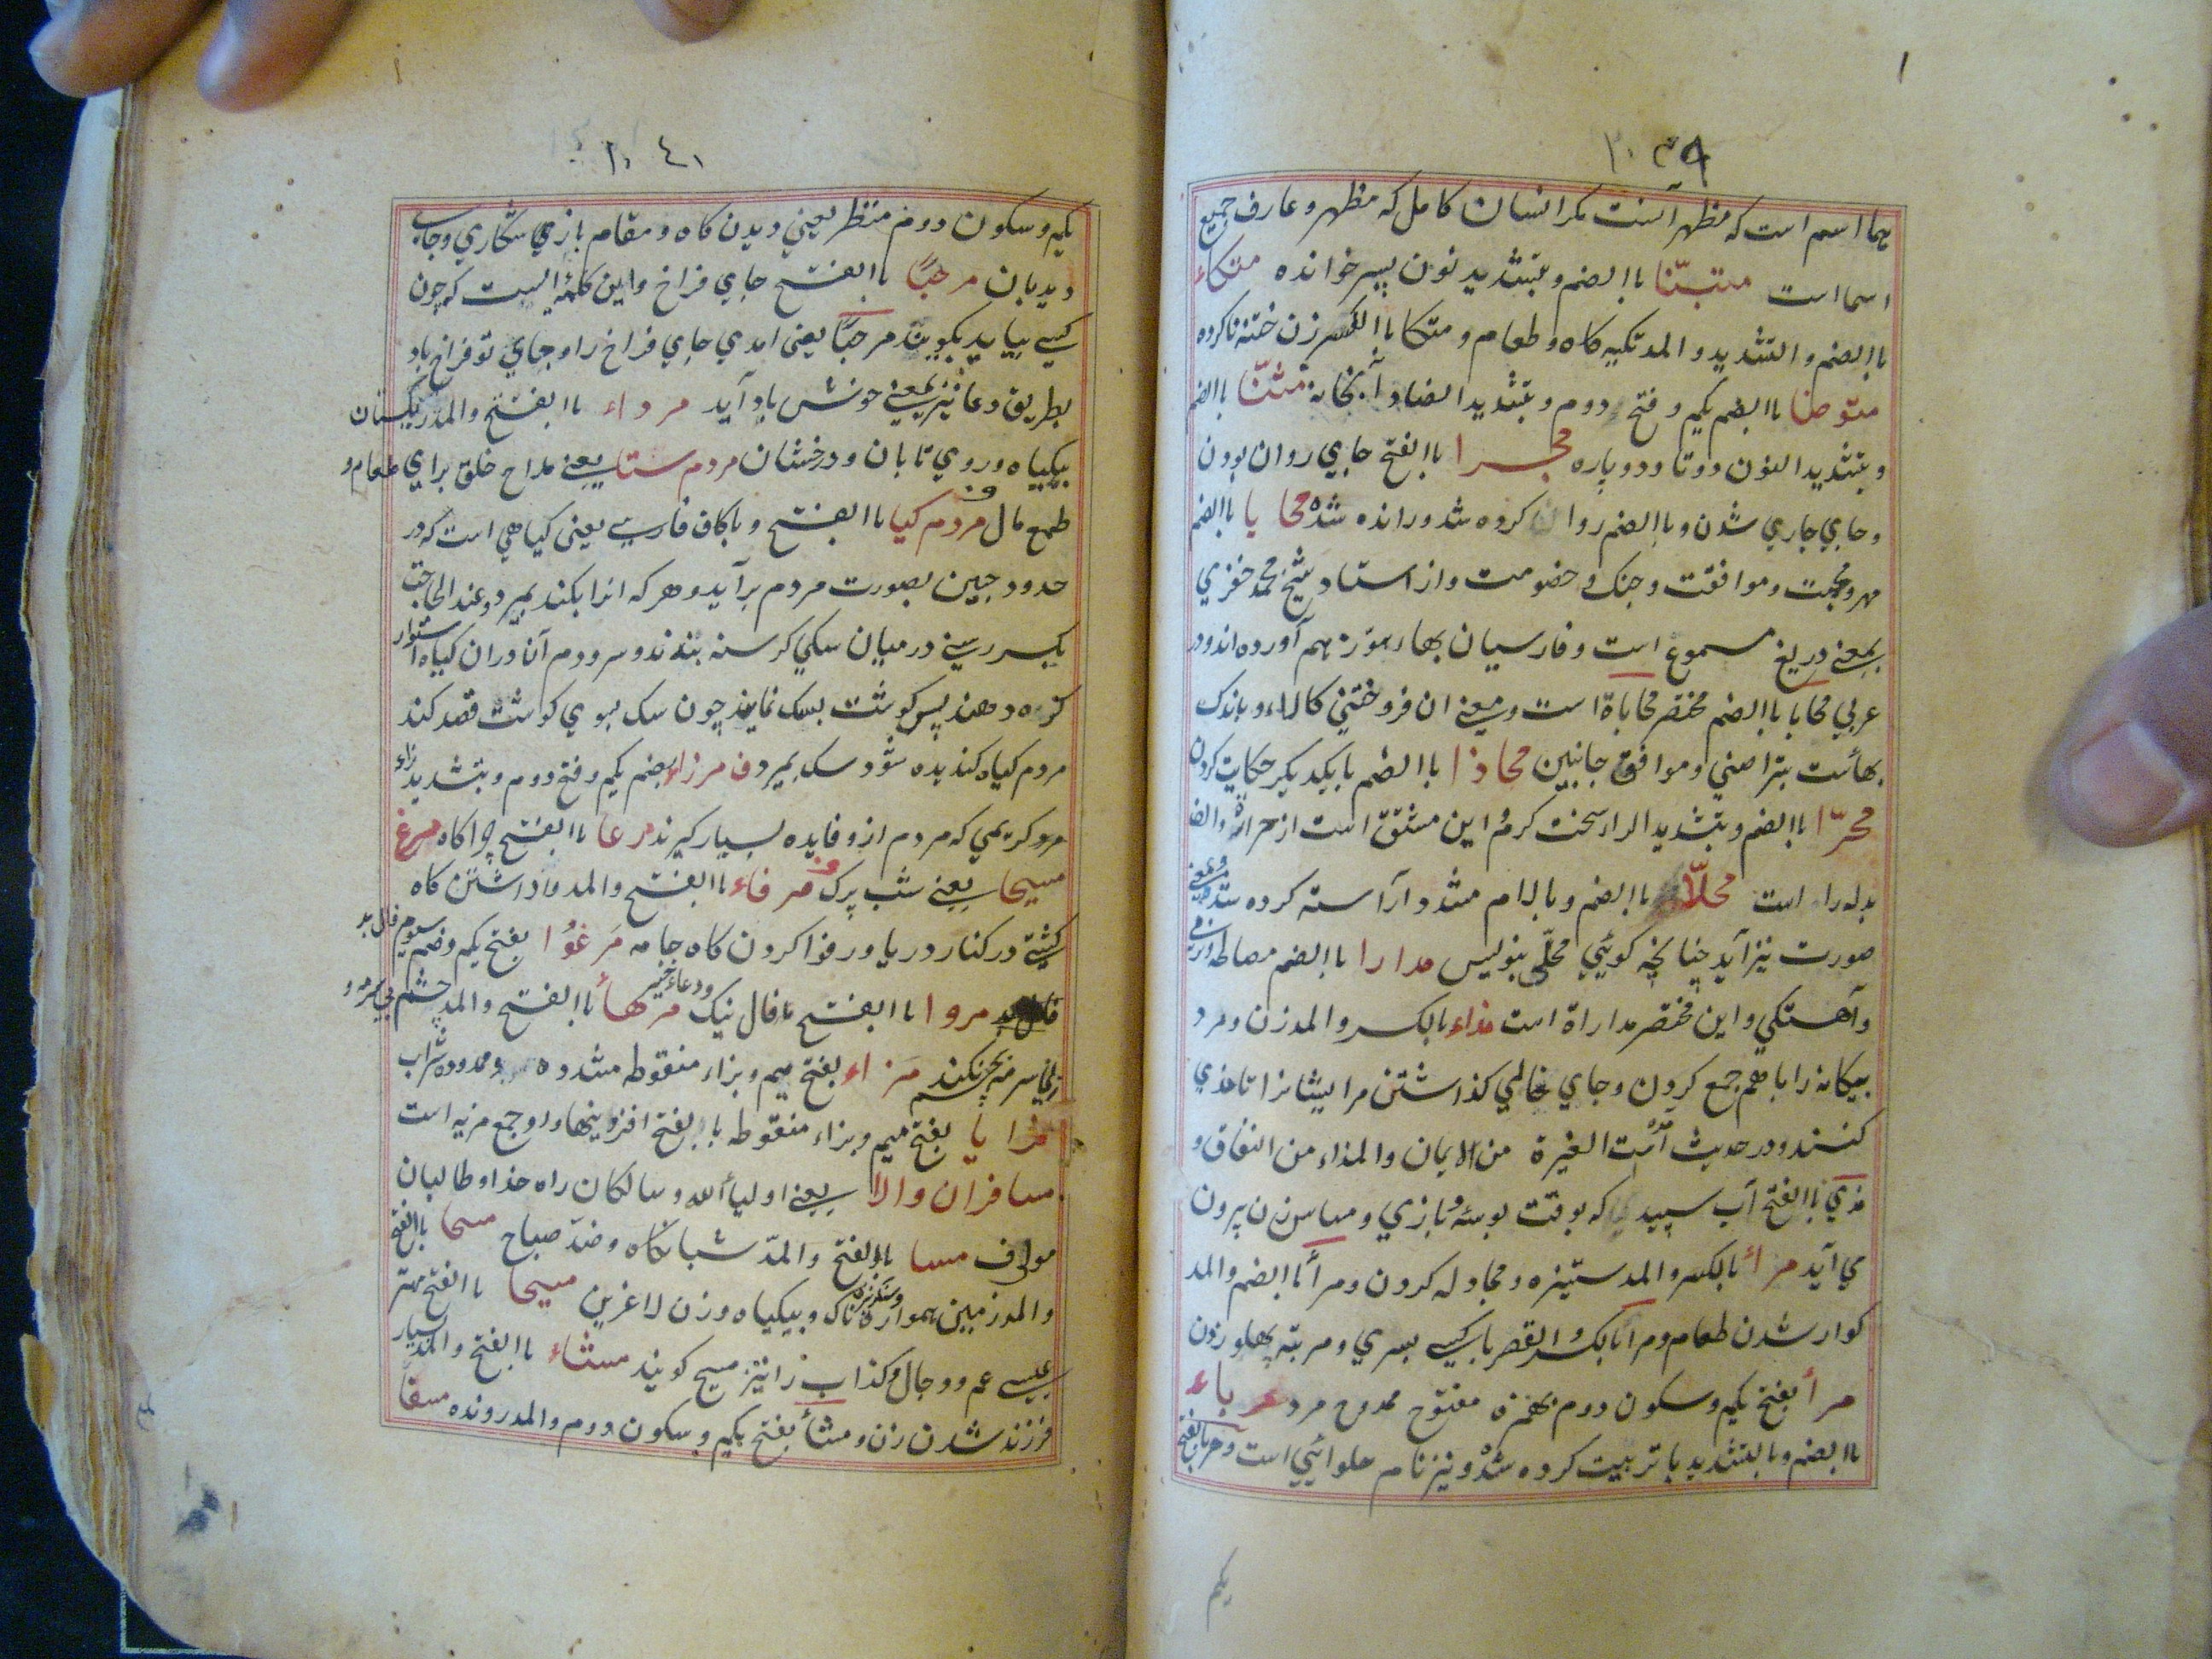 ٣٩
هما اسم است که مظهر آنست مکر انسان کامل که مظهر و عارف جمیع
اسما است متبنّا باالضم و بتشدید نون پسر خوانده متکاء
باالضم والتشدید والمد تکیه کاه و طعام و متکا باالکسر زن ختنه ناکرده
متوضا باالضم یکم و فتح دوم و بتشدید الضاد آبخانه مثنّا باالضم
و بتشدید النون دوتا و دوباره مجرا باالفتح جای روان بودن
و جای جاری شدن و باالضم روان کرده شد و رانده شده محابا باالضم
مهر و محبت و موافقت و جنک و خصومت و از استاد شیخ محمد خضری
بمعنی دریغ مسموع است و فارسیان بهاء هوز نهم آورده اند و در
عربی محابا باالضم مختصر محاباة است و معنی ان فروختنی کالاء و باندک
بهاست بتراضی و موافق جانبین محاذا باالضم با یکدیکر حکایت کردن
محرّا باالضم و بتشدید الراء سخت کرم و این مشتق است از حرارة
بدله راء است محلّا باالضم و بالام مشدد آراسته کرده شد و بمعنی
صورت نیز آید چنانچه کوئیی محلّی بنویس مدارا باالضم مصالحه و نرمی
و آهستکی و این مختصر مداراة است مذاء بالکسر والمد زن و مرد
بیکانه را با هم جمع کردن و جای خالی کذاشتن مر ایشانرا تا مذی
کنند و در حدیث آمده است الغیرة من الایمان والمذاء من النفاق و
مذی باالفتح آب سپیدی که بوقت بوسه و بازی و مساس زن بیرون
می آید مراء بالکسر والمد ستیزه و مجادله کردن و مرأ باالضم والمد
کوار شدن طعام و مرا بالکسر والقصر با کسی بسری و مرتبه پهلو زدن
مرأ بفتح یکم و سکون دوم بهمزه مفتوح ممدوح مرد مرباء
باالضم و بالتشدید با تربیت کرده شده و نیز نام حلوائیی است و مربا بفتح
یکم
٤١
یکم و سکون دوم منظر یعنی دیدن کاه و مقام بازی شکاری و جای
دیدبان مرحبًا باالفتح جای فراخ و این کلمه ایست که چون
کسی بیاید بکویند مرحبًا یعنی امدی جای فراخ را و جای تو فراخ باد
بطریق دعا نیز بمعنی خوش باد آید مرداء باالفتح والمد ریکستان
بیکیاه و روی تابان و درخشان مردم ستا یعنی مداح خلق برای طعام و
طمع مال مردم کیا باالفتح و با کاف فارسی یعنی کیاهی است که در
حدود چین بصورت مردم برآید و هر که انرا بکند بمیرد و عند الحاجت
یکسر رسنی در میان سکی کرسنه بندند و سر دوم آنا دران کیاه استوار
کره دهند پس کوشت بسک نمایند چون سک بسوی کوشت قصد کند
مردم کیاه کنده شود سک بمیرد ف مرزاء بضم یکم و فتح دوم و بتشدید زاء
مرد کریمی که مردم ازو فایده بسیار کیرند مرعا باالفتح چراکاه مرغ
مسیحا یعنی شب پرک مرفاء باالفتح والمد و داشتن کاه
کشتی در کنار دریا و رفوا کردن کاه جامه مرغوا بفتح یکم و ضم سیوم فال بد
مروا باالفتح فال نیک و دعاء خیر مرهأ باالفتح والمد چشم بی سرمه و
زنی سرمه بچشم نکند مزاء بفتح میم و بزاء منقوطه مشدده و ممدوده شراب
مزایا بفتح میم و بزاء منقوطه باالفتح افزونیها و او جمع مزیه است
مسافران والا یعنی اولیاء الله و سالکان راه خدا و طالبان
مولی ف مسا باالفتح والمدّ شبانکاه و ضدّ صباح مسحا باالفتح
والمد زمین هموار و سنکریزه ناک و بیکیاه و زن لاغرین مسیحا باالفتح مهتر
عیسی عم و دجال و کذاب را نیز مسیح کویند مشاء باالفتح والمد بسیار
فرزند شدن زن و مشأ بفتح یکم و سکون دوم والمد رونده